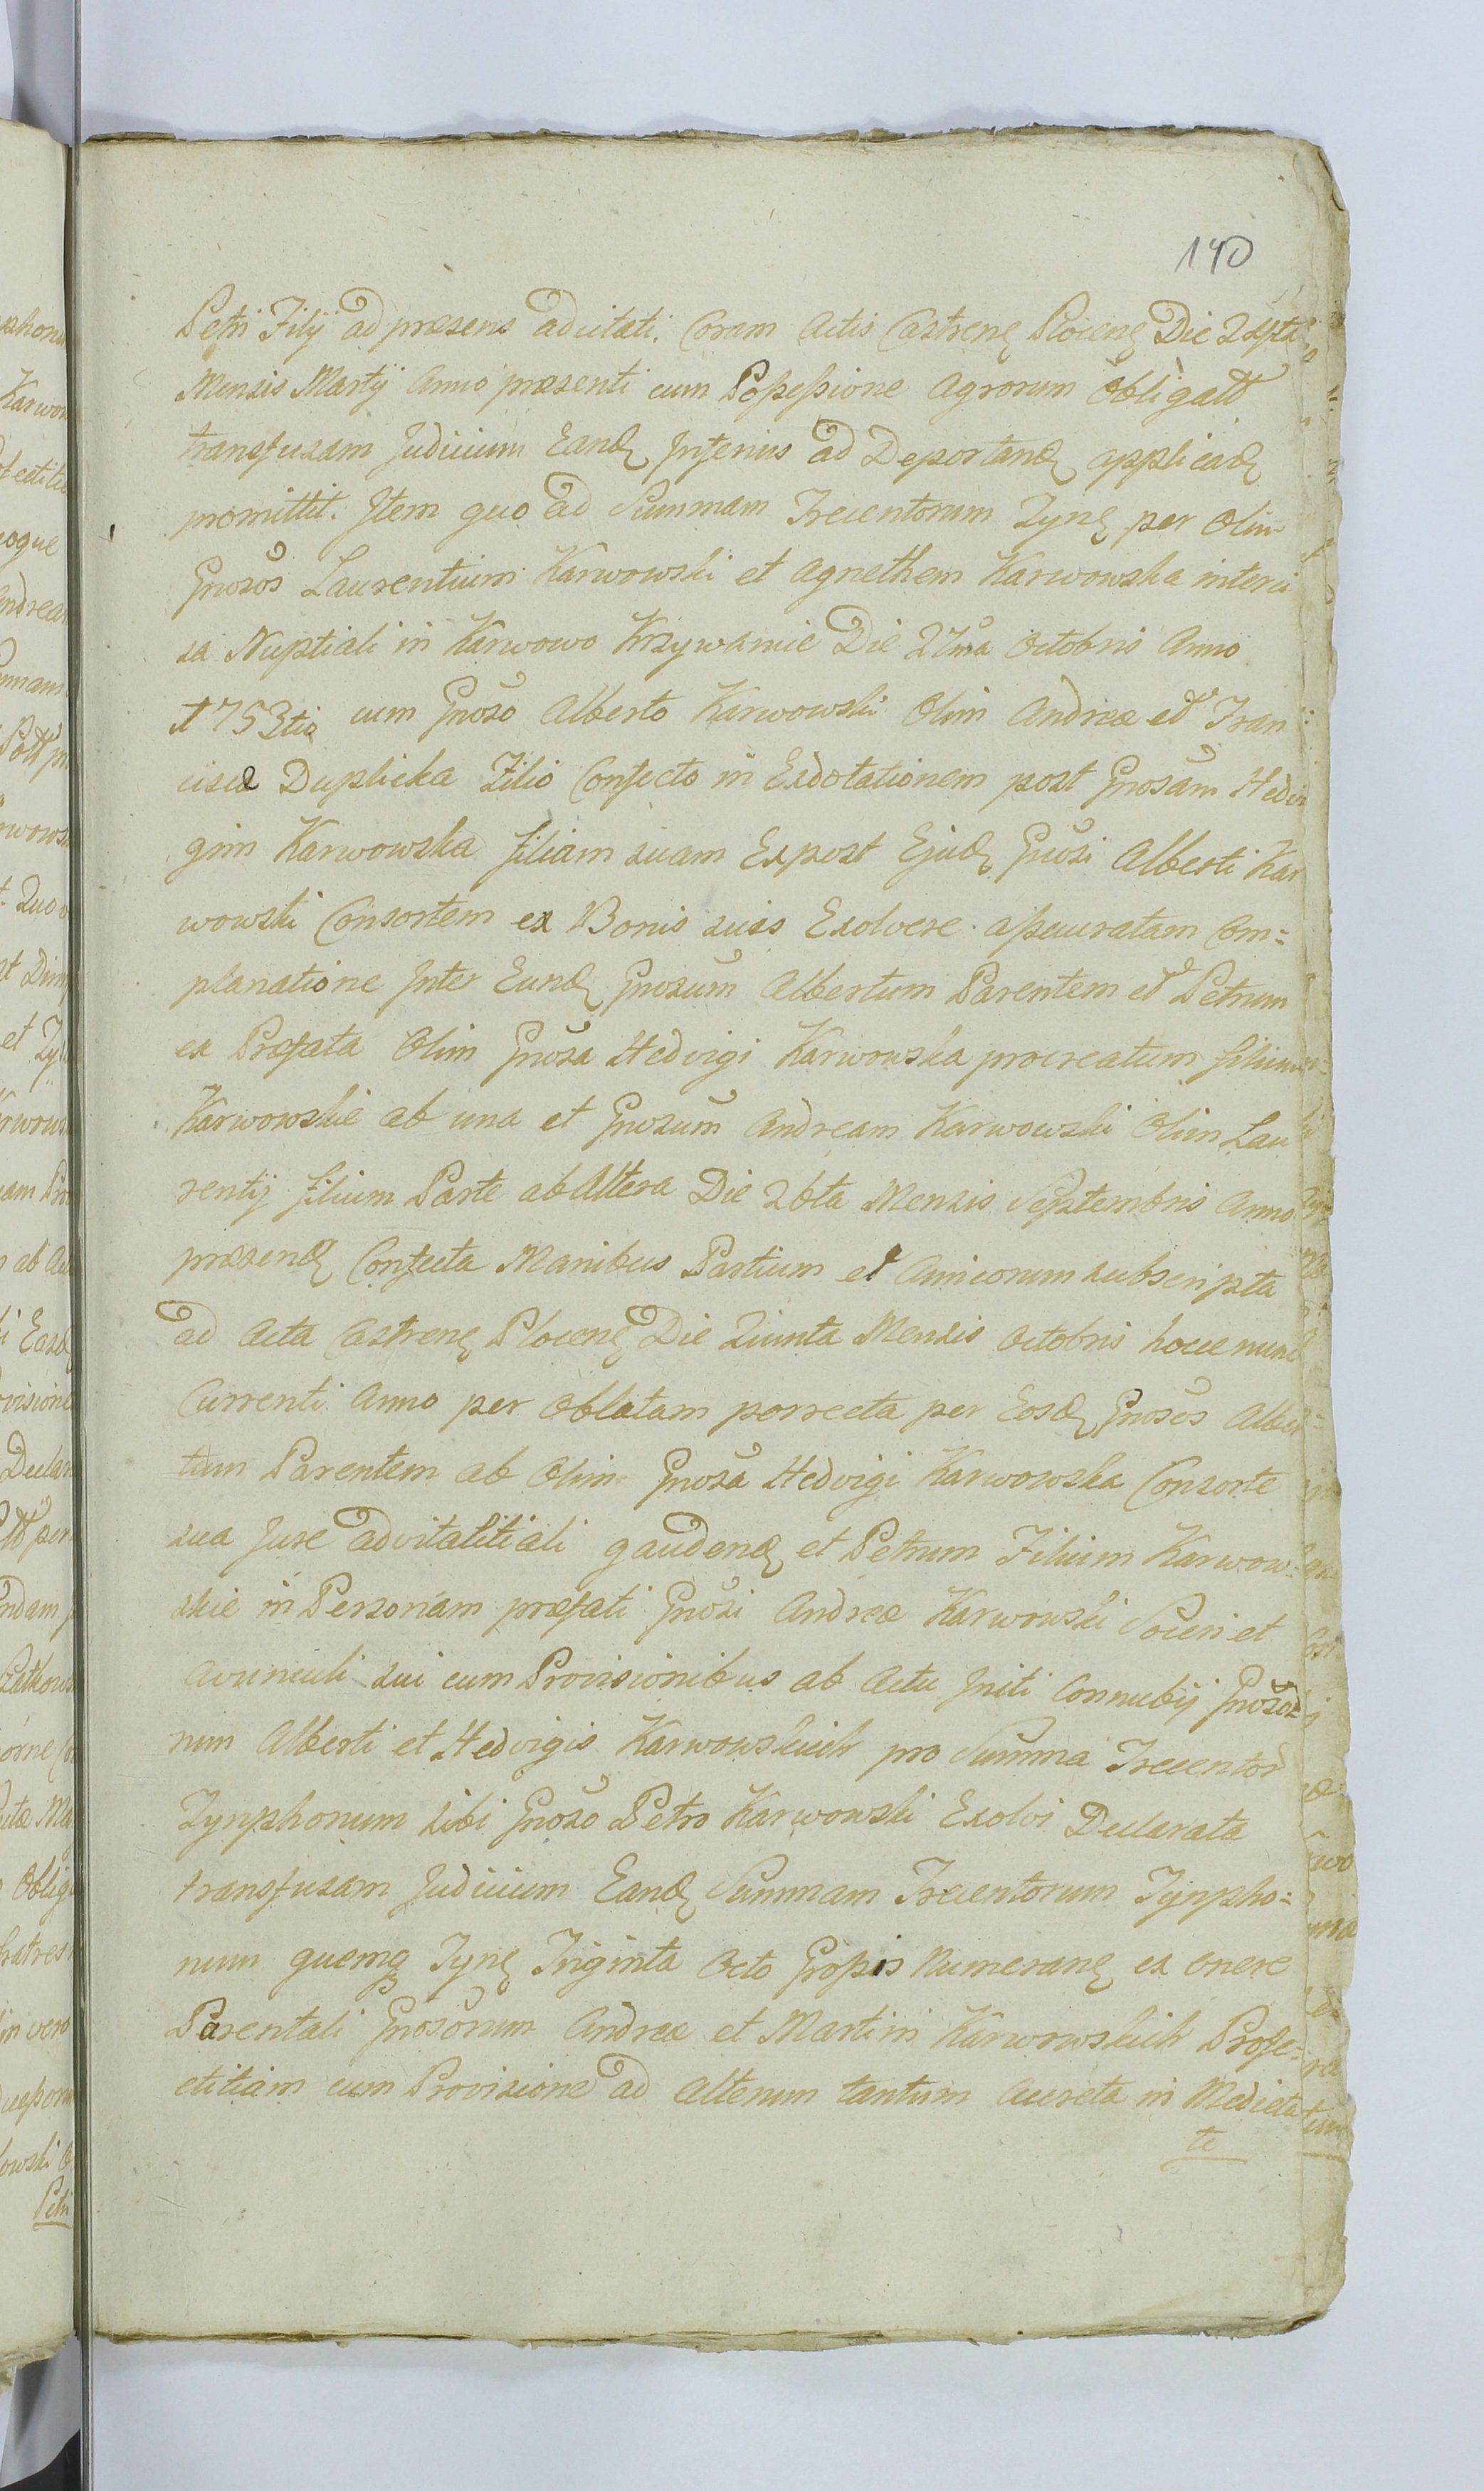 140
Petri Filij ad præsens advitati. Coram Actis Castren̄ Plocen̄ Die 24ta
Mensis Martij Anno præsenti cum Poſseſsione Agrorum Obligatt
transfusam Judicium Eand Inferius ad Deportand applicad
promittit. Item quo ad Summam Trecentorum Tyn per Olim
Gnosos Laurentium Karwowski et Agnethem Karwowska interci
sa Nuptiali in Karwowo Krzywanie Die 27ma Octobris Anno
1753tio cum Gnoso Alberto Karwowski Olim Andreæ et Fran
ciscæ Duplicka Filio Confecto in Exdotationem post Gnosam Hedvi
gim Karwowska filiam suam Expost Ejud Gnosi Alberti Kar
wowski Consortem ex Bonis suis Exolvere aſsecuratam Com=
planatione Inter Eund Gnosum Albertum Parentem et Petrum
ex Præfata Olim Gnosa Hedvigi Karwowska procreatum filium
Karwowskie ab una et Gnosum Andream Karwowski Olim Lau
rentij filium Parte ab Altera Die 26ta Mensis Septembris Anno
præsend Confecta Manibus Partium et Amicorum subscripta
ad Acta Castren Plocen Die Quinta Mensis Octobris hocce nunc
Currenti Anno per Oblatam porrecta per Eosd Gnosos Alber
tum Parentem ab Olim Gnosa Hedvigi Karwowska Consorte
sua Jure advitalitiali gaudend et Petrum Filium Karwow=
skie in Personam præfati Gnosi Andreæ Karwowski Soceri et
Avunculi sui cum Provisionibus ab Actu Initi Connubij Gnoso
rum Alberti et Hedvigis Karwowskich pro Summa Trecentor
Tynphonum sibi Gnoso Petro Karwowski Exolvi Declarata
transfusam Judicium Eand Summam Trecentorum Tynpho=
num quemq Tyn Triginta Octo Groſsis Numeran ex onere
Parentali Gnosorum Andreæ et Martini Karwowskich Profe=
ctitiam cum Provisione ad Alterum tantum Accreta in Medieta
te